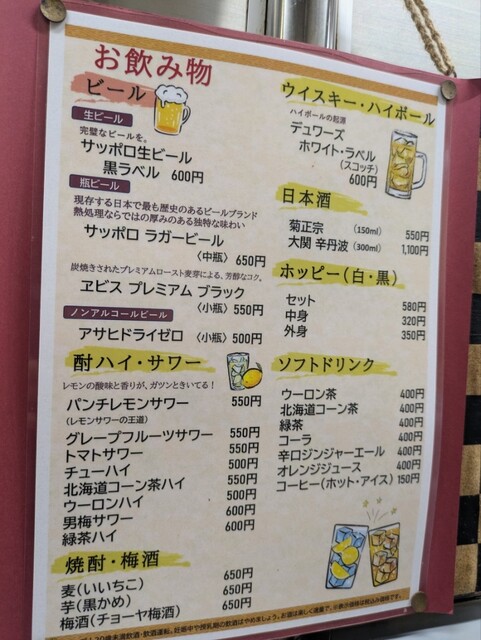 お飲み物
ビール
生ビール
完璧なビールを。
サッポロ生ビール
黒ラベル 600円
瓶ビール
現存する日本で最も歴史のあるビールブランド
熱処理ならではの厚みのある独特な味わい
サッポロ ラガービール
〈中瓶〉 650円
炭焼きされたプレミアムロースト麦芽による、芳醇なコク。
ヱビス プレミアム ブラック
〈小瓶〉 550円
ノンアルコールビール
アサヒドライゼロ 〈小瓶〉 500円
酎ハイ・サワー
レモンの酸味と香りが、ガツンときいてる!
パンチレモンサワー 550円
(レモンサワーの王道)
グレープフルーツサワー 550円
トマトサワー 550円
チューハイ 500円
北海道コーン茶ハイ 550円
ウーロンハイ 500円
男梅サワー 600円
緑茶ハイ 600円
焼酎・梅酒
麦(いいちこ) 650円
芋(黒かめ) 650円
梅酒(チョーヤ梅酒) 650円
ウイスキー・ハイボール
ハイボールの起源
デュワーズ
ホワイト・ラベル
(スコッチ)
600円
日本酒
菊正宗 (150ml) 550円
大関 辛丹波 (300ml) 1,100円
ホッピー(白・黒)
セット 580円
中身 320円
外身 350円
ソフトドリンク
ウーロン茶 400円
北海道コーン茶 400円
緑茶 400円
コーラ 400円
辛口ジンジャーエール 400円
オレンジジュース 400円
コーヒー(ホット・アイス) 150円
20歳未満飲酒・飲酒運転。妊娠中や授乳期の飲酒はやめましょう。お酒は楽しく適量で。※表示価格は税込み価格です。